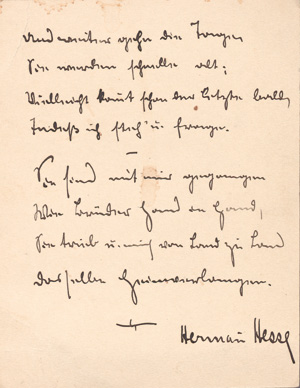 Und weiter gehn die Tage,
Sie werden schnelle alt;
Vielleicht kommt schon der letzte bald,
Indeß ich steh' u. frage.
Sie sind mit mir gegangen
Wie Brüder Hand in Hand,
Sie trieb u. mich von Land zu Land
Dasselbe Heimverlangen.
Herman Hesse